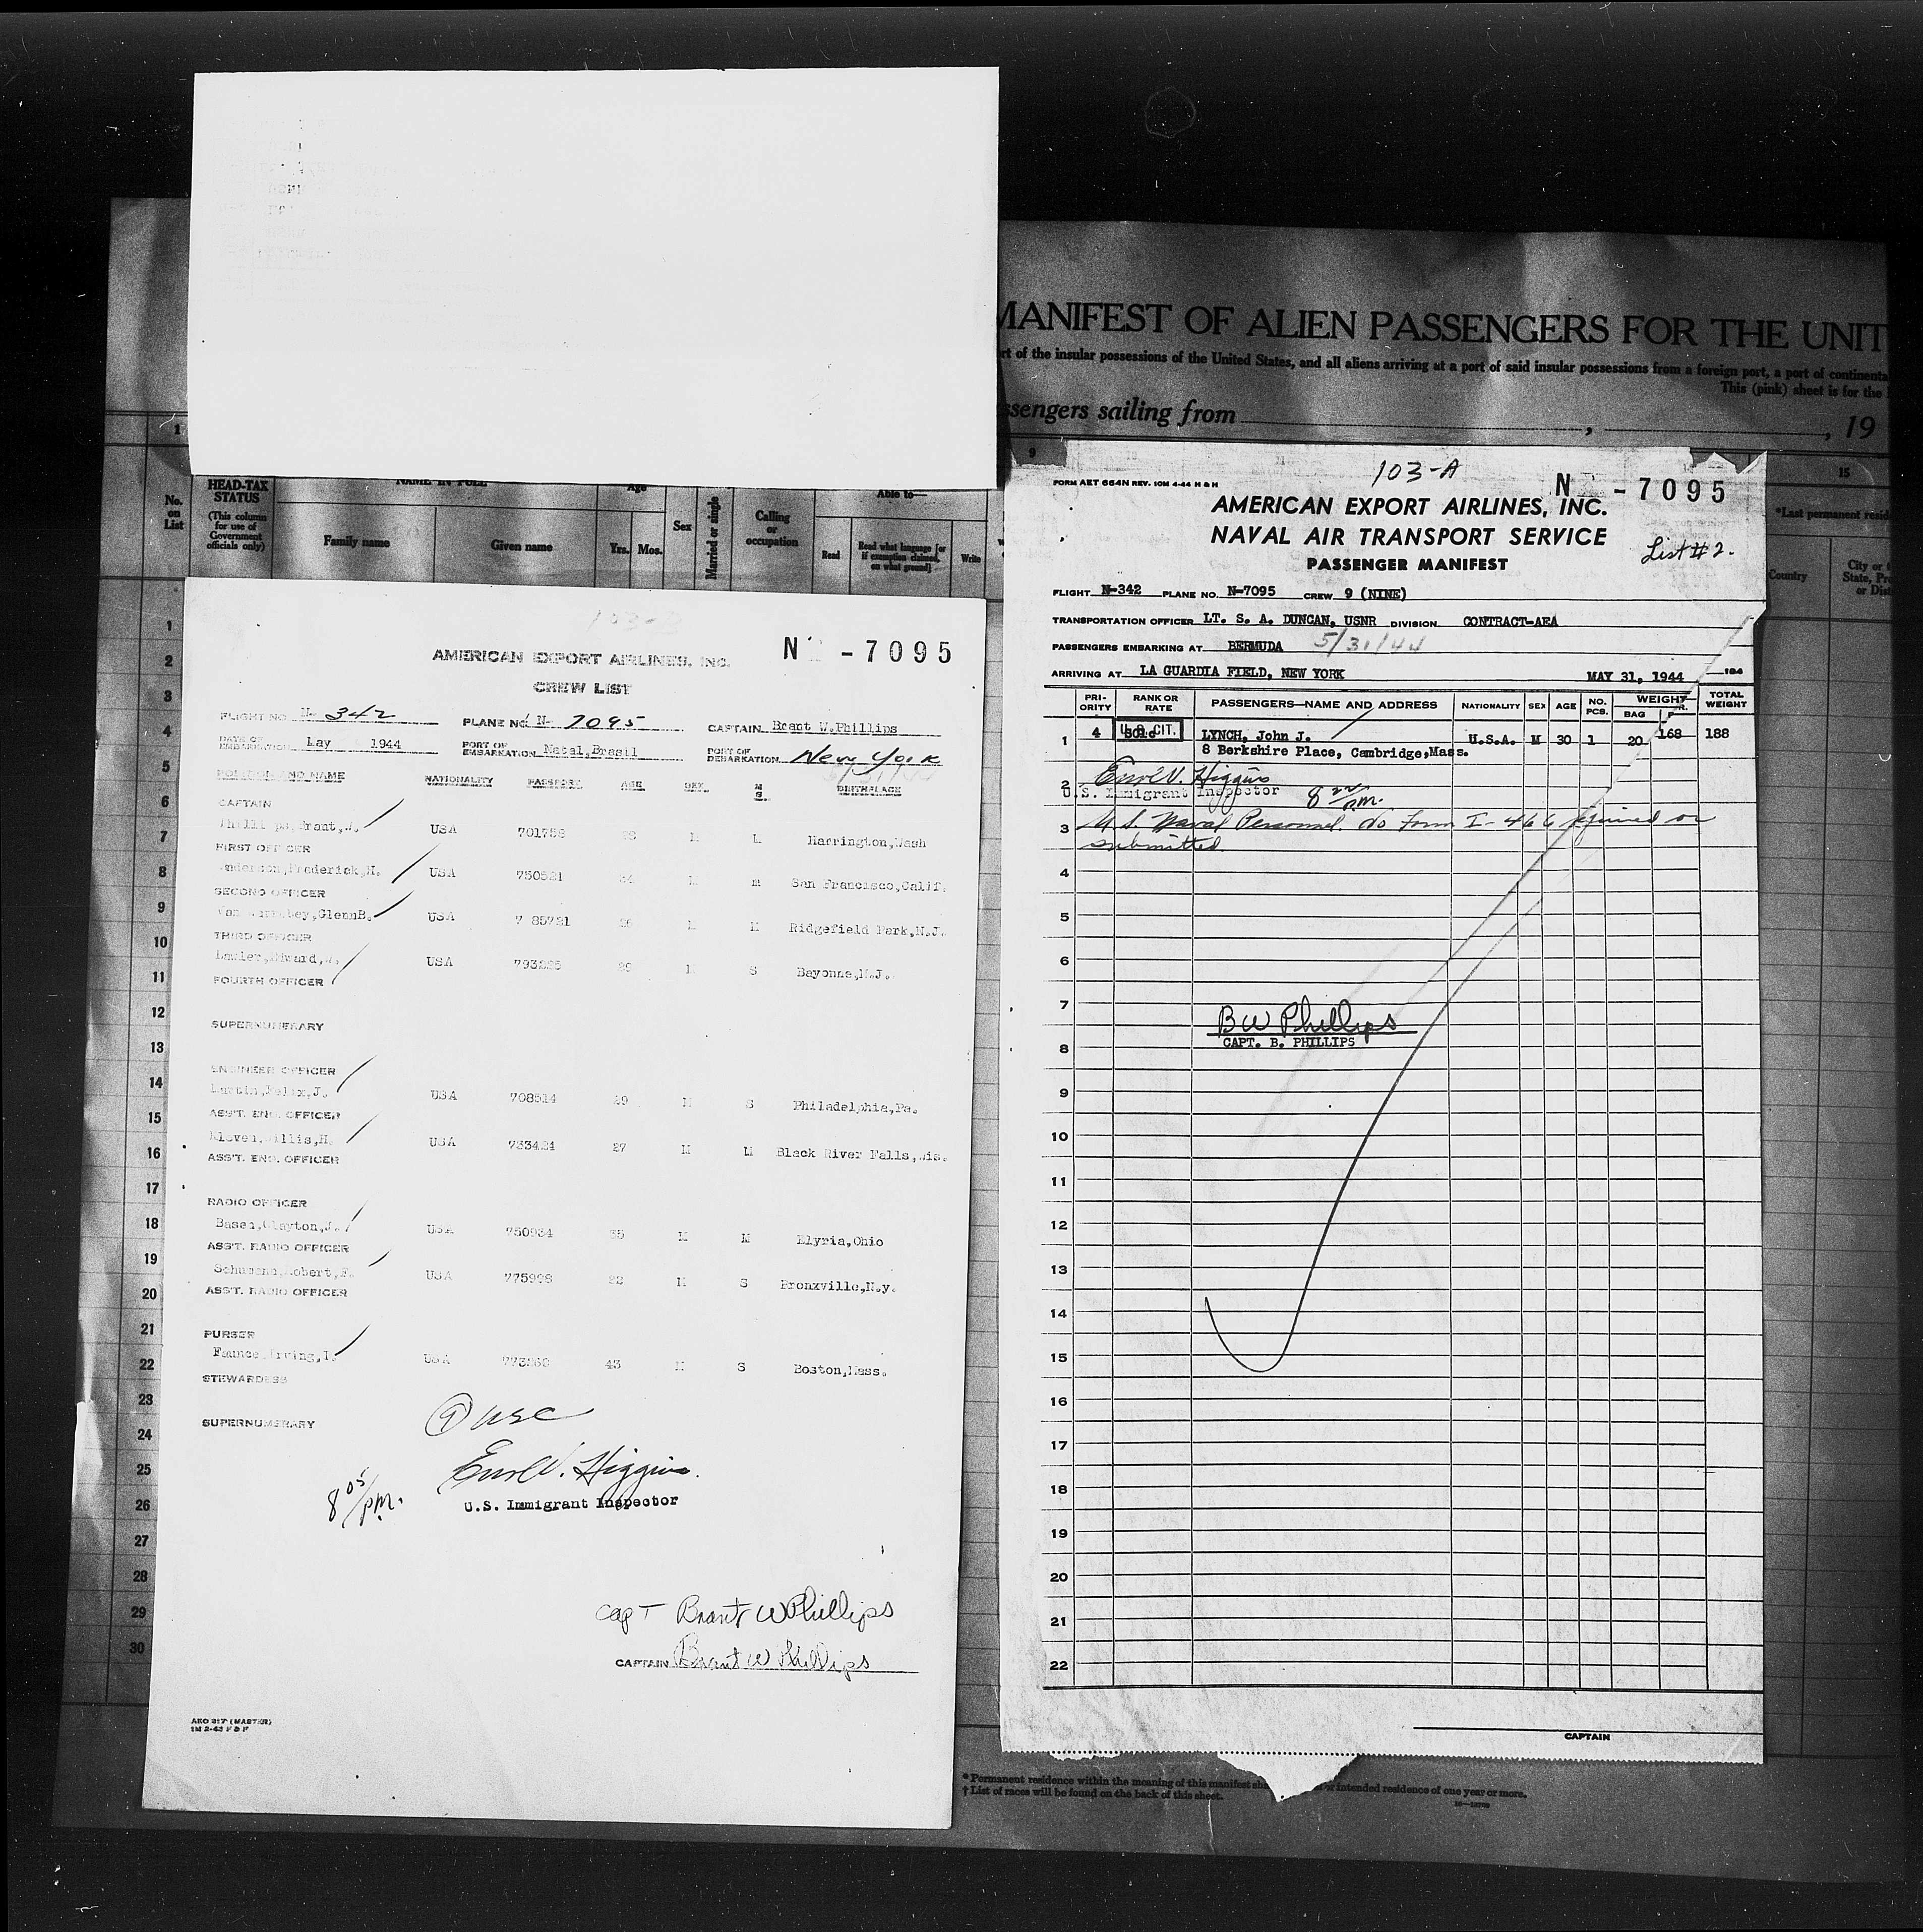 MANIFEST OF ALIEN PASSENGERS FOR THE UNIT
rt of the insular possessions of the United States, and all aliens arriving at a port of said insular possessions from a foreign port, a port of continenta
This (pink) sheet is for the
ssengers sailing from , , 19
1
9
15
No. on List
HEAD-TAX STATUS
(This column for use of Government officials only)
NAME IN FULL
Family name
Given name
Age
Yrs.
Mos.
Sex
Married or single
Calling or occupation
Able to—
Read
Read what language [or if exemption claimed, on what ground]
Write
*Last permanent resid
Country
City or
State, Pr
or Dist
1
2
3
4
5
6
7
8
9
10
11
12
13
14
15
16
17
18
19
20
21
22
23
24
25
26
27
28
29
30
N -7095
AMERICAN EXPORT AIRLINES, INC.
CREW LIST
FLIGHT NO. N- 342 PLANE NO. N- 7095 CAPTAIN Brant W.Phillips
DATE OF EMBARKATION 1944 PORT OF EMBARKATION Natal,Brasil PORT OF DEBARKATION New York
POSITION AND NAME NATIONALITY PASSPORT AGE SEX M S. BIRTHPLACE
CAPTAIN
Phillips,Brant,W. USA 701758 M Harrington,Wash
FIRST OFFICER
Anderson,Frederick,H. USA 750521 34 M M San Francisco,Calif.
SECOND OFFICER
USA 7 85721 26 M M Ridgefield Park,N.J.
THIRD OFFICER
Lawler,Edward,J. USA 793225 29 M S Bayonne,N.J.
FOURTH OFFICER
SUPERNUMERARY
ENGINEER OFFICER
USA 708514 29 M S Philadelphia,Pa.
ASS'T. ENG. OFFICER
Kleven,Willis,H. USA 733424 27 M M Black River Falls,Wis.
ASS'T. ENG. OFFICER
RADIO OFFICER
Clayton,J. USA 750934 35 M M Elyria,Ohio
ASS'T. RADIO OFFICER
Schumann,Robert,F. USA 775998 22 M S Bronxville,N.y.
ASS'T. RADIO OFFICER
PURSER
Faunce,Irving,L. USA 773260 43 M S Boston,Mass.
STEWARDESS
SUPERNUMERARY
9 USC
Earl V. Higgins.
8 05/pm.
U.S. Immigrant Inspector
Capt Brant W Phillips
CAPTAIN Brant W Phillips
AEO 317 (MASTER)
1M 2-43 F & F
103-A
FORM AET 664N REV. 10M 4-44 H & H
N -7095
AMERICAN EXPORT AIRLINES, INC.
NAVAL AIR TRANSPORT SERVICE
List # 2.
PASSENGER MANIFEST
FLIGHT N-342 PLANE NO. N-7095 CREW 9 (NINE)
TRANSPORTATION OFFICER LT. S. A. DUNCAN, USNR DIVISION CONTRACT-AEA
PASSENGERS EMBARKING AT BERMUDA 5/31/44
ARRIVING AT LA GUARDIA FIELD, NEW YORK MAY 31, 1944 194
PRI-ORITY RANK OR RATE PASSENGERS—NAME AND ADDRESS NATIONALITY SEX AGE NO. PCS. WEIGHT BAG PR. TOTAL WEIGHT
1 4 U.S. CIT. LYNCH, John J. U.S.A. M 30 1 20 168 188
8 Berkshire Place, Cambridge,Mass.
2 Earl V. Higgins
U.S. Immigrant Inspector 8 22/pm.
3 U.S. Naval Personnel. No Form I-466 required or
submitted.
4
5
6
7
B W Phillips
CAPT. B. PHILLIPS
8
9
10
11
12
13
14
15
16
17
18
19
20
21
22
CAPTAIN
*Permanent residence within the meaning of this manifest sha or intended residence of one year or more.
† List of races will be found on the back of this sheet.